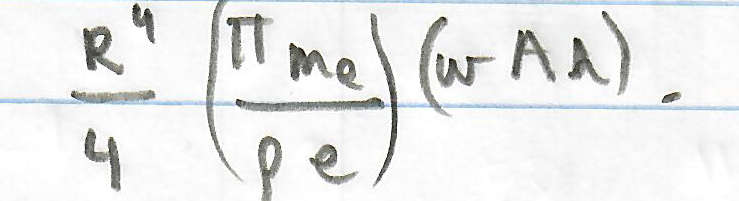 R⁴/4 (Π me / ρ e) (w A λ).